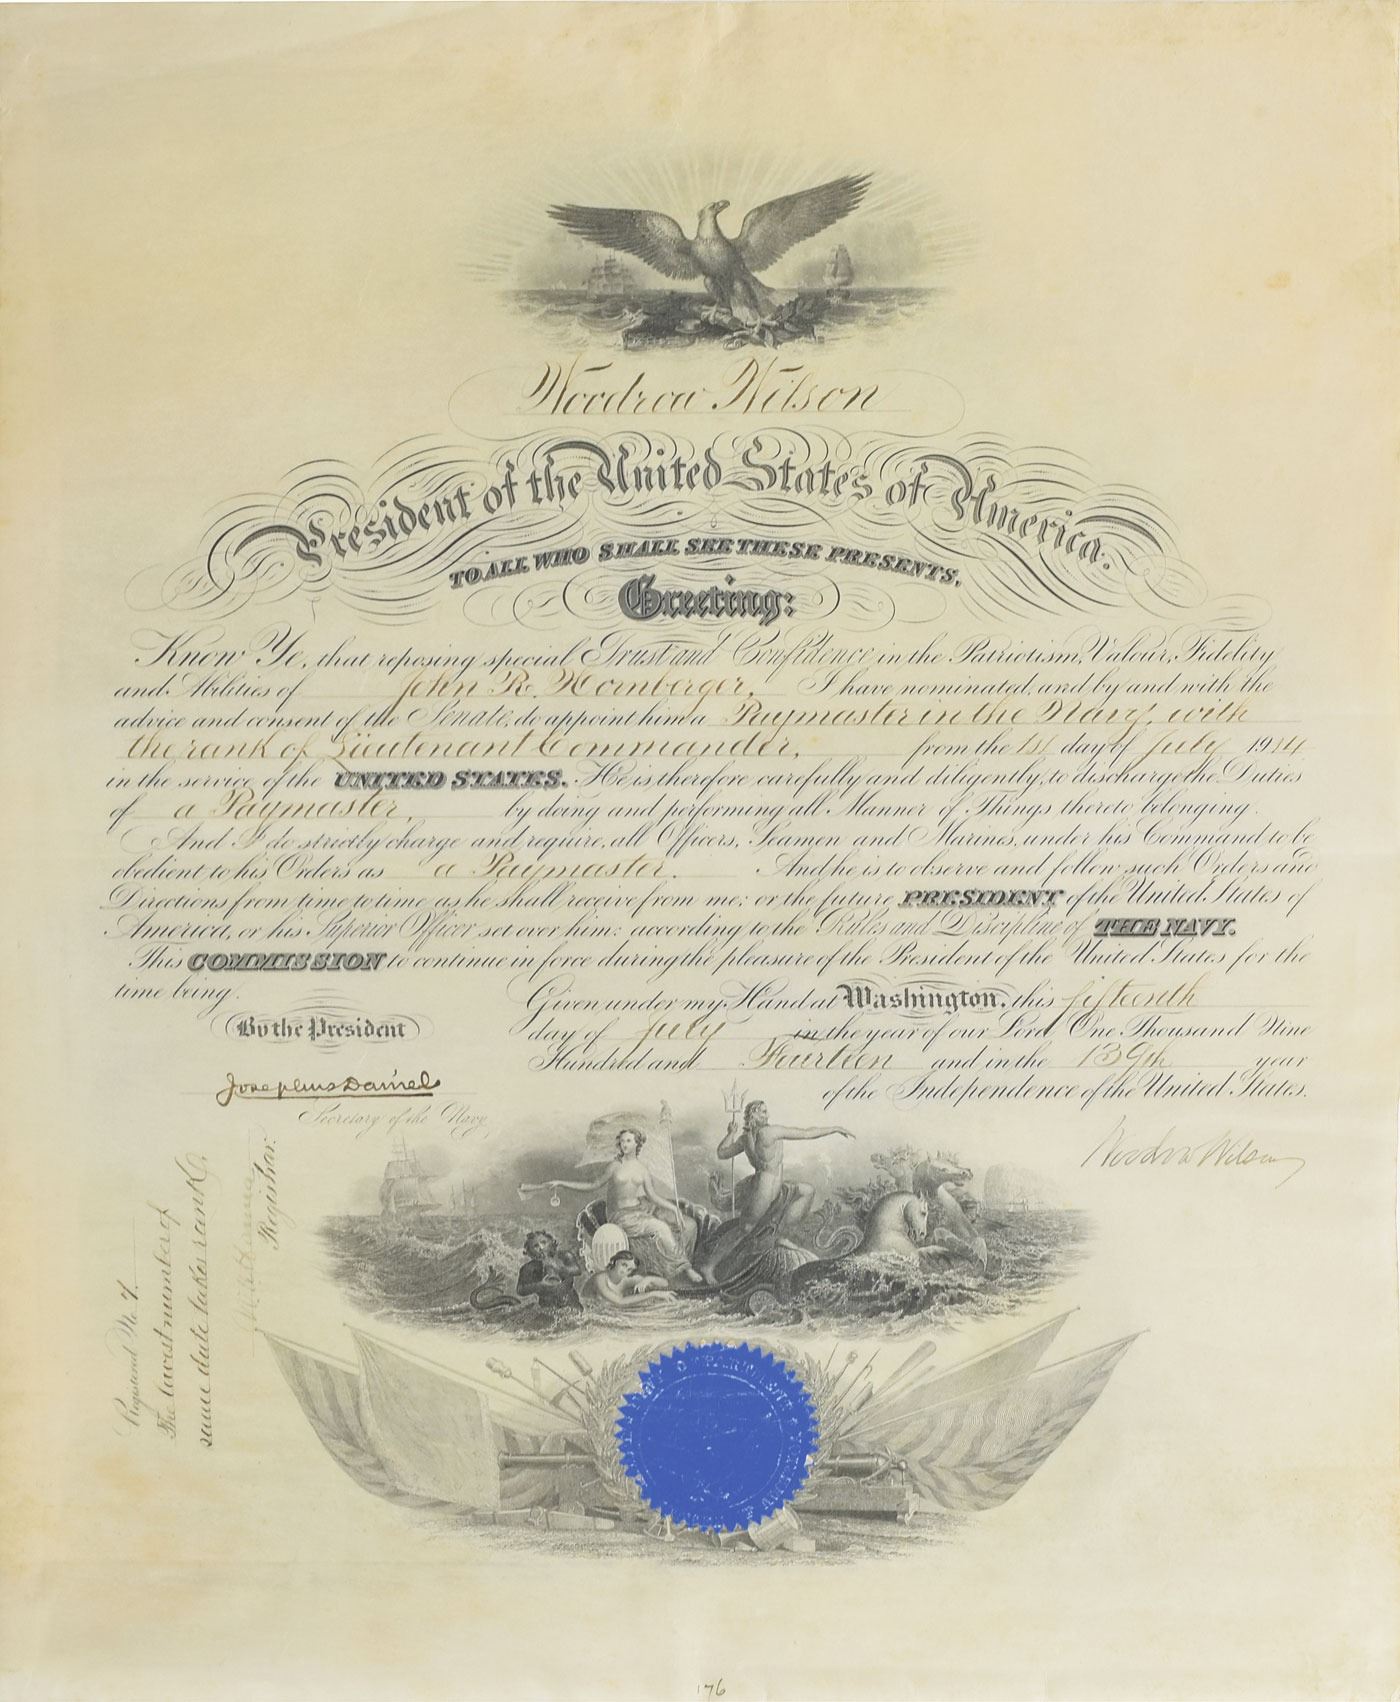 Woodrow Wilson
President of the United States of America.
TO ALL WHO SHALL SEE THESE PRESENTS,
Greeting:
Know Ye, that reposing special Trust and Confidence in the Patriotism, Valour, Fidelity
and Abilities of John R. Hornberger, I have nominated, and by and with the
advice and consent of the Senate, do appoint him a Paymaster in the Navy, with
the rank of Lieutenant Commander, from the 1st day of July 1914
in the service of the UNITED STATES. He is therefore carefully and diligently, to discharge the Duties
of a Paymaster, by doing and performing all Manner of Things thereto belonging.
And I do strictly charge and require, all Officers, Seamen and Marines, under his Command to be
obedient to his Orders as a Paymaster. And he is to observe and follow such Orders and
Directions from time to time as he shall receive from me; or the future PRESIDENT of the United States of
America, or his Superior Officer set over him: according to the Rules and Discipline of THE NAVY.
This COMMISSION to continue in force during the pleasure of the President of the United States for the
time being.
Given under my Hand at Washington, this fifteenth
day of July in the year of our Lord One Thousand Nine
Hundred and Fourteen and in the 139th year
of the Independence of the United States.
By the President
Josephus Daniels
Secretary of the Navy
Woodrow Wilson
Registered No. 7.
The lowest number of
same date takes rank.
Registrar.
176